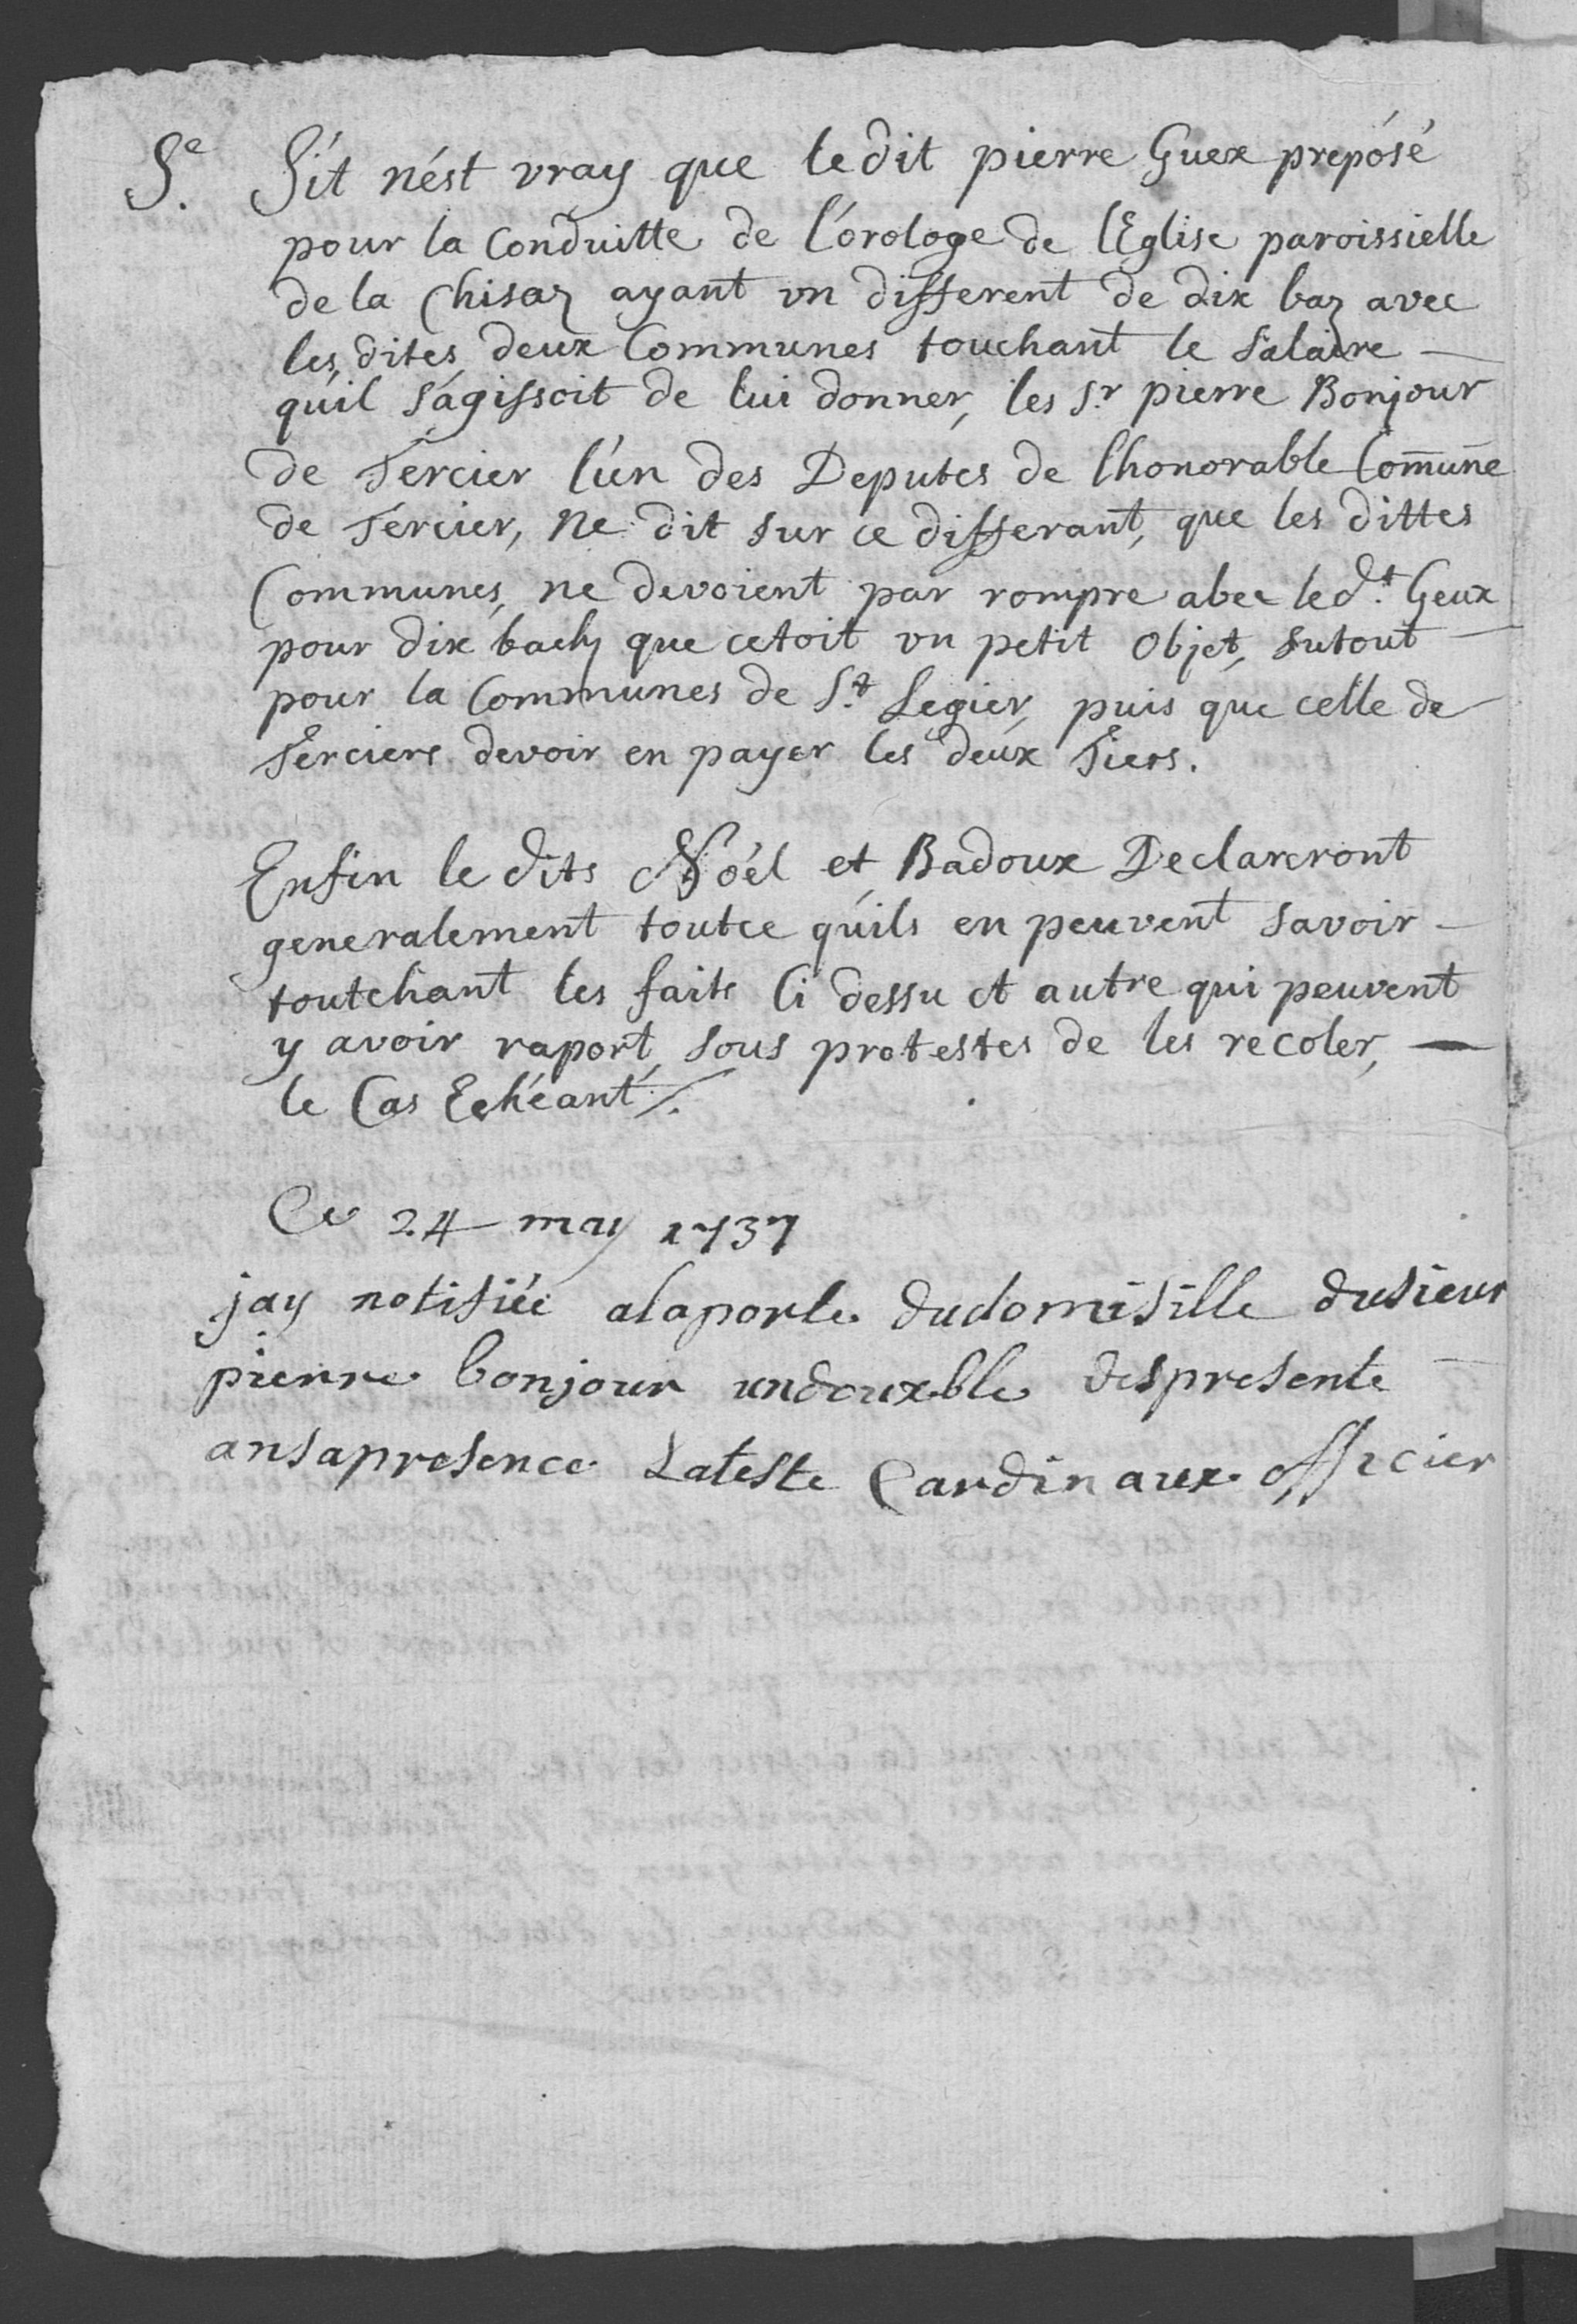 5.e S'it n'ést vray que ledit pierre Guex prepósé
pour la Conduitte de l'órologe de lEglise paroissielle
de la Chisaz ayant un different de dix baz avec
les dites deux Communes touchant le Salaire —
qu'il s'ágissoit de lui donner, les S.r pierre Bonjour
de Tercier l'ún des Deputes de l'honorable Com̄une
de Tercier, Ne dit sur ce differant, que les dittes
Communes, ne devoient par rompre abec led.t Geux
pour dix bachz que cetoit un petit Objet, sutout —
pour la Communes de S.t Legier, puis que celle de
Terciers devoir en payer les deux Tiers.
Enfin le dits Nóél et Badoux Declareront
generalement toutce qu'ils en peuvent savoir —
toutchant les faits Ci dessu et autre qui peuvent
y avoir raport, sous protestes de les recoler, —
le Cas Echéant /.
Ce 24 may 1737
jay notifiée alaporte dudomisille dusieur
pierre bonjour undouxble despresente
ansapresence Lateste Cardinaux officier